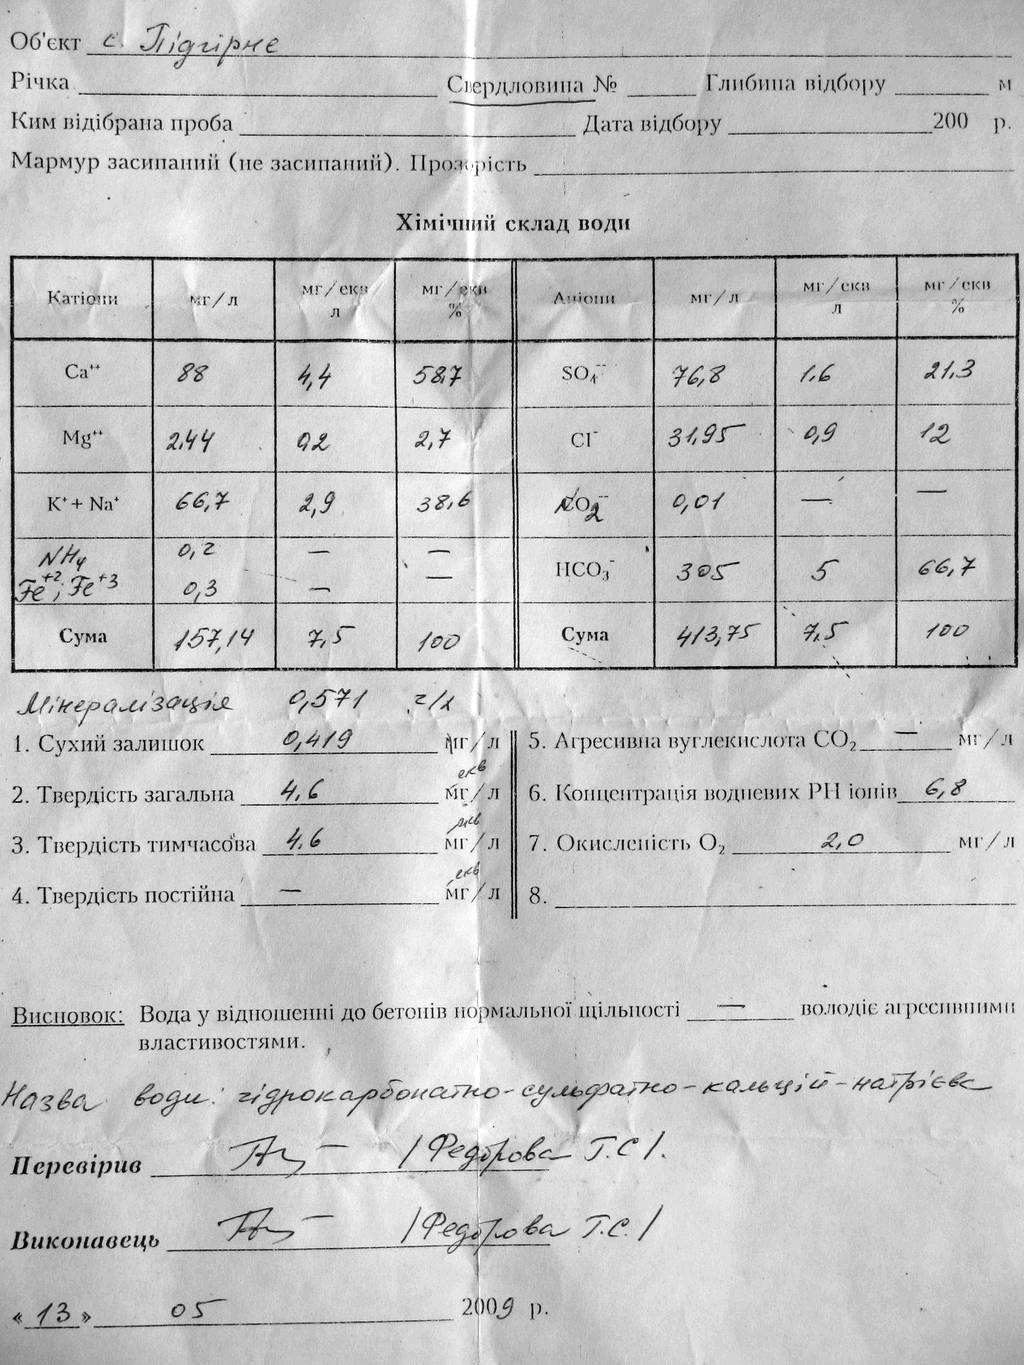 Об'єкт с. Підгірне
Річка Свердловина № Глибина відбору м
Ким відібрана проба Дата відбору 200 р.
Мармур засипаний (не засипаний). Прозорість
Хімічний склад води
Катіони мг/л мг/екв л мг/екв % Аніони мг/л мг/екв л мг/екв %
Ca⁺⁺ 88 4,4 58,7 SO₄⁻⁻ 76,8 1.6 21.3
Mg⁺⁺ 2,44 0,2 2,7 Cl⁻ 31,95 0,9 12
K⁺ + Na⁺ 66,7 2,9 38,6 NO₂⁻ 0,01 — —
NH₄ 0,2 — —
Fe⁺²; Fe⁺³ 0,3 — — HCO₃⁻ 305 5 66,7
Сума 157,14 7,5 100 Сума 413,75 7,5 100
Мінералізація 0,571 г/л
1. Сухий залишок 0,419 г/л 5. Агресивна вуглекислота CO₂ — мг/л
2. Твердість загальна 4,6 мг/л екв 6. Концентрація водневих РН іонів 6,8
3. Твердість тимчасова 4.6 мг/л екв 7. Окисленість O₂ 2,0 мг/л
4. Твердість постійна — мг/л екв 8.
Висновок: Вода у відношенні до бетонів нормальної щільності — володіє агресивними
властивостями.
Назва води: гідрокарбонатно-сульфатно-кальцій-натрієва
Перевірив /Федорова Т.С/.
Виконавець /Федорова Т.С./
«13» 05 2009 р.